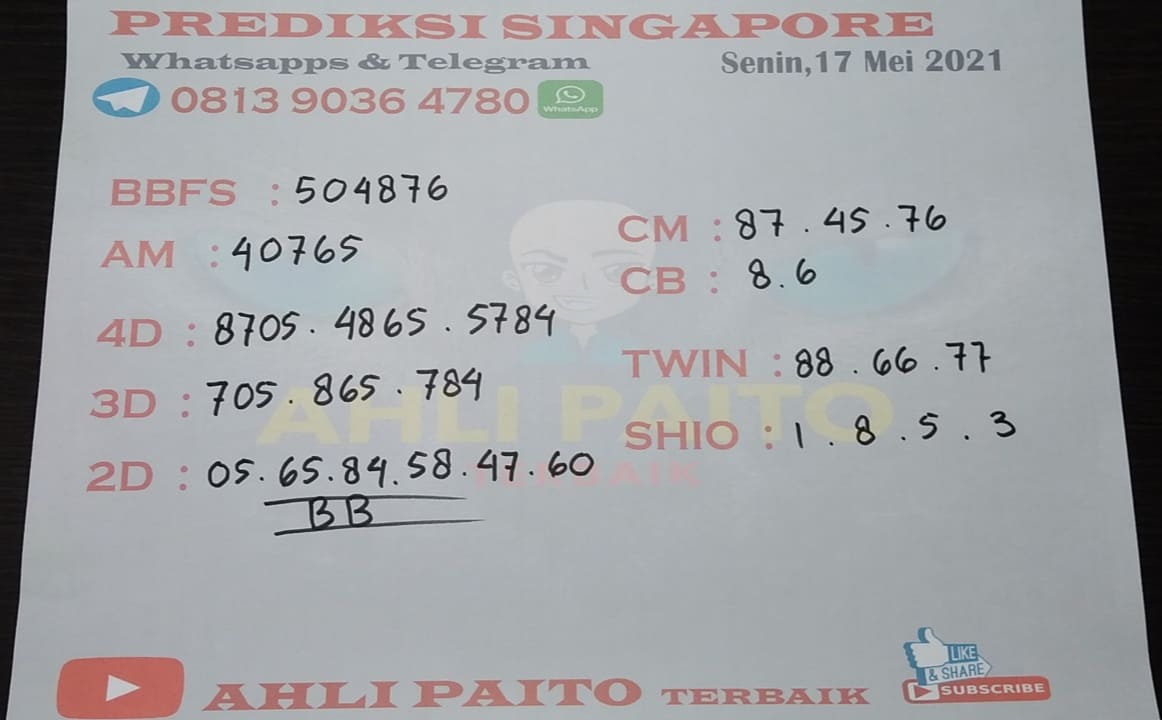 PREDIKSI SINGAPORE
Whatsapps & Telegram
Senin,17 Mei 2021
0813 9036 4780
WhatsApp
BBFS : 504876
AM : 40765
4D : 8705 . 4865 . 5784
3D : 705 . 865 . 784
2D : 05 . 65 . 84 . 58 . 47 . 60
BB
CM : 87 . 45 . 76
CB : 8 . 6
TWIN : 88 . 66 . 77
SHIO : 1 . 8 . 5 . 3
AHLI PAITO
TERBAIK
AHLI PAITO TERBAIK
LIKE
& SHARE
SUBSCRIBE